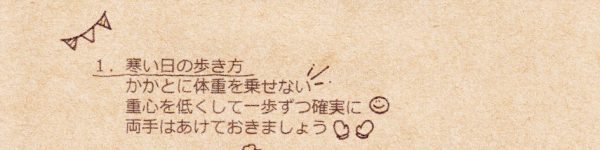 1. 寒い日の歩き方
かかとに体重を乗せない
重心を低くして一歩ずつ確実に
両手はあけておきましょう